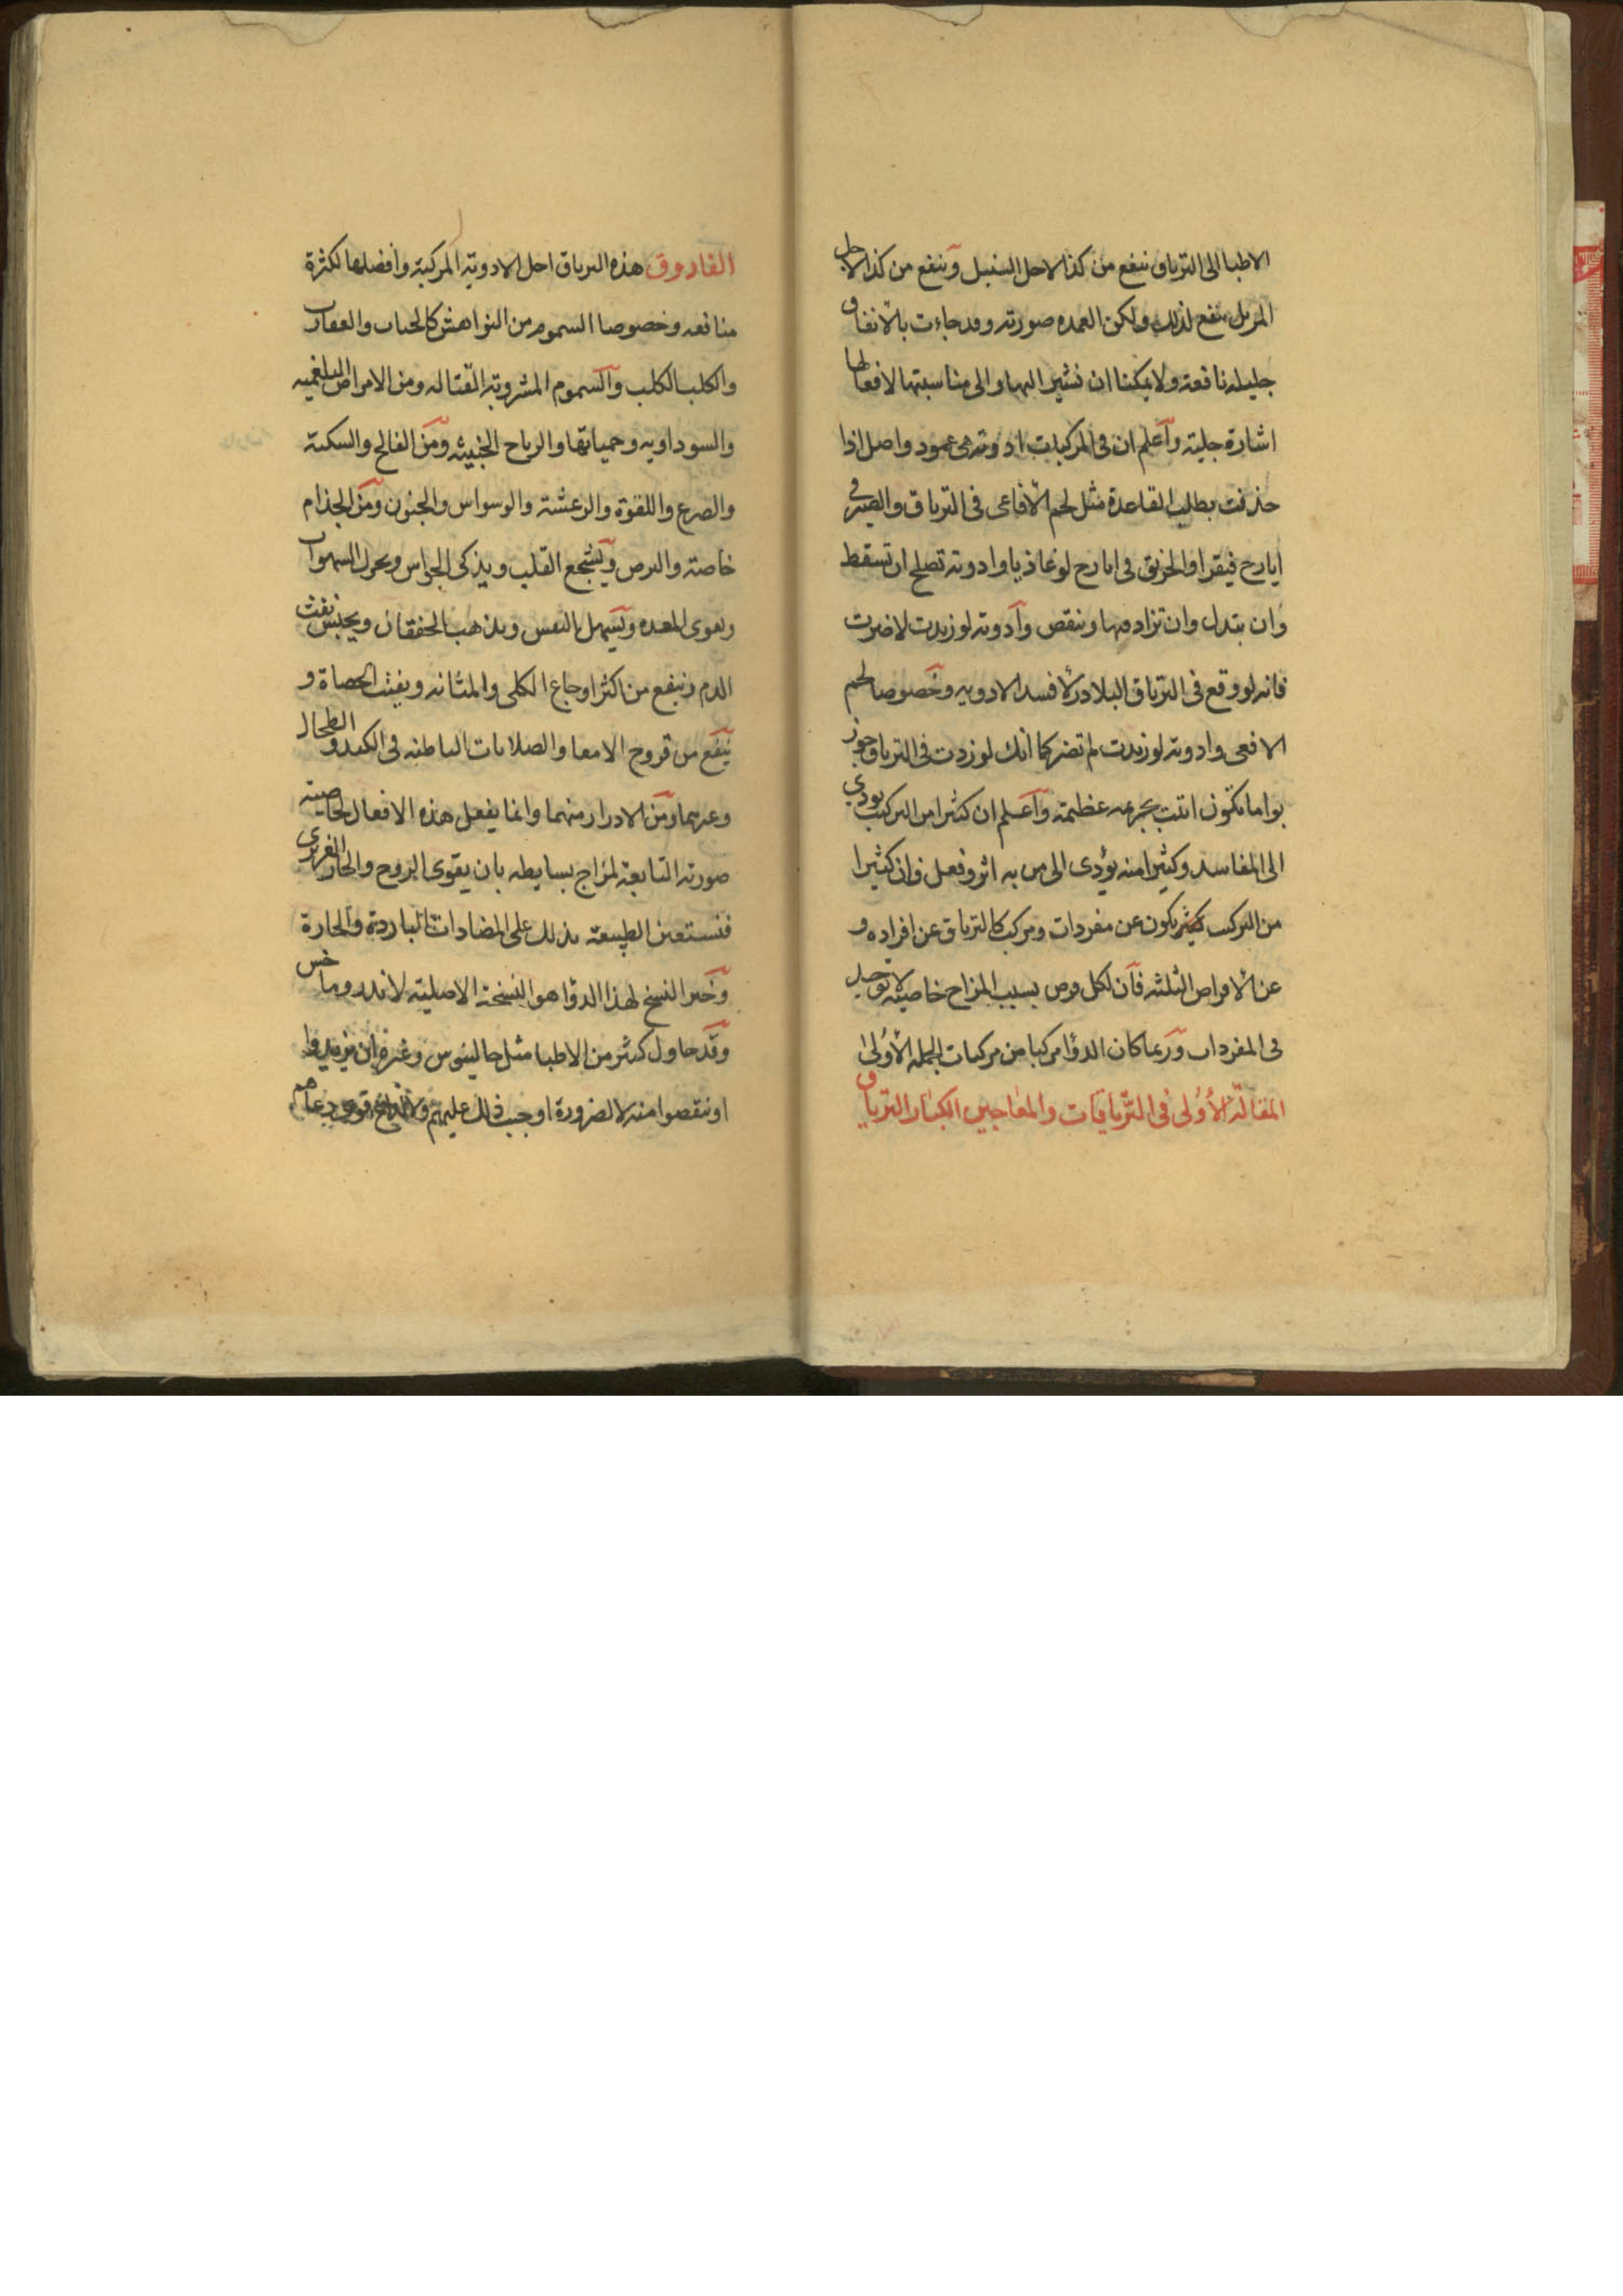 الاطبا الى الترياق ينفع من كذا لاجل السنبل وينفع من كذا لاجل
المر بل ينفع لذلك ولكن العمده صورته وقد جاءت بالاتفاق
جليله نافعة ولا يمكننا ان نشير اليها والى مناسبتها لافعالها
اشارة جلية واعلم ان فى المركبات ادوية هى عمود واصل اذا
حذفت بطلت القاعدة مثل لحم الافاعى فى الترياق والصبر فى
ايارج فيقرا والخربق فى ايارج لوغاذيا وادوية تصلح ان تسقط
وان تبدل وان تزاد فيها وينقص وادوية لو زيدت لاضرت
فانه لو وقع فى الترياق البلادر لافسد الادويه وخصوصا لحم
الافعى وادوية لو زيدت لم تضر كما انك لو زدت فى الترياق جوز
بوا ما تكون اتيت بجرمه عظيمة واعلم ان كثيرا من التركيب يودي
الى المفاسد وكثيرا منه يؤدى الى من به اثر وفعل وان كثيرا
من التركيب يكون عن مفردات ومركب كالترياق عن افراده و
عن الاقراص الثلثه فان لكل قرص بسبب المزاج خاصية لا توجد
فى المفردات وربما كان الدؤا مركبا من مركبات الجمله الأولى
المقالة الأولى فى الترياقات والمعاجين الكبار الترياق
الفاروق هذه الترياق اجل الادوية المركبة وافضلها لكثرة
منافعه وخصوصا السموم من النواهش كالحيات والعقارب
والكلب الكلب والسموم المشروبة القتاله ومن الامراض البلغميه
والسوداويه وحمياتها والرياح الخبيثه ومن الفالج والسكتة
والصرع واللقوة والرعشة والوسواس والجنون ومن الجذام
خاصة والبرص ويشجع القلب ويذكى الحواس ويحرك الشهوات
ويقوى المعده ويسهل النفس ويذهب الخفقان ويحبس نفث
الدم وينفع من اكثر اوجاع الكلى والمثانه ويفتت الحصاة و
ينفع من قروح الامعا والصلابات الباطنه فى الكبد و الطحال
وغيرهما ومن الادرار منهما وانما يفعل هذه الافعال بخاصية
صورته التابعة لمزاج بسايطه بان يقوى الروح والحار الغريزي
فتستعين الطبيعة بذلك على المضادات الباردة والحارة
وخير النسخ لهذا الدؤا هو النسخة الاصلية لاندروماخس
وقد حاول كثير من الاطبا مثل جالينوس وغيره ان يزيدوا
او ينقصوا منه لا لضرورة اوجبت ذلك عليهم ولا